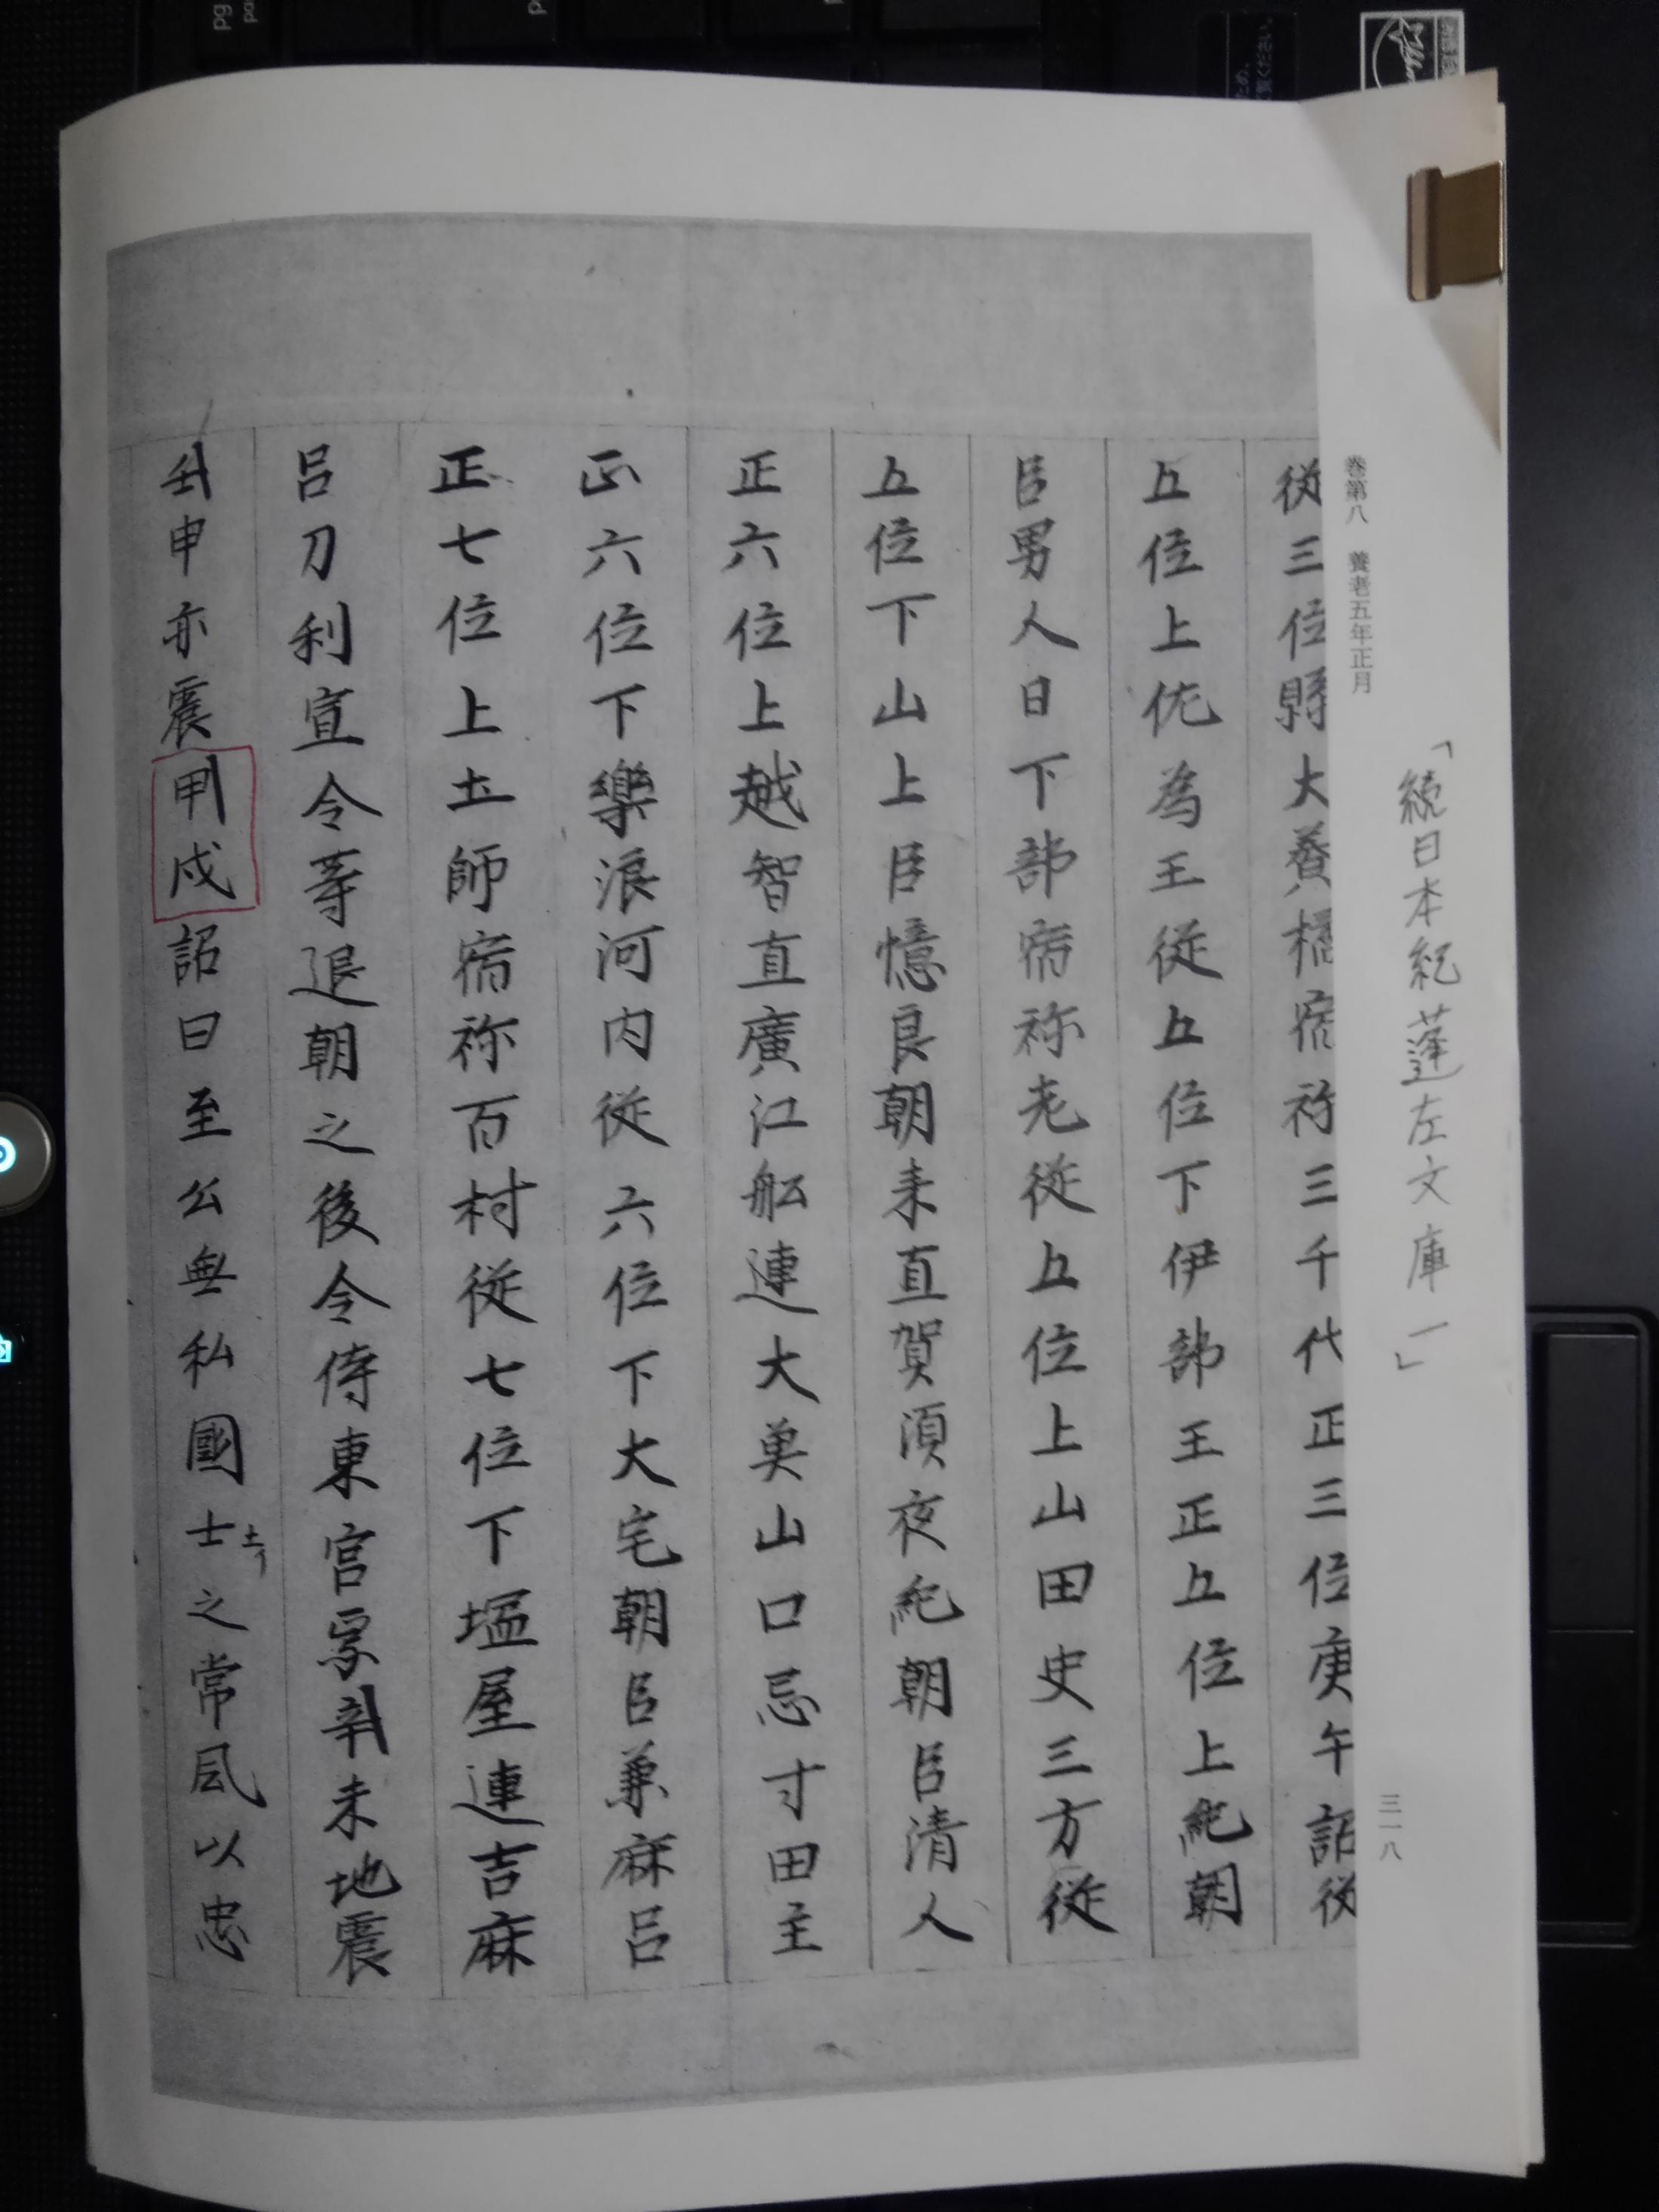 「続日本紀蓬左文庫一」
巻第八　養老五年正月
三一八
従三位縣大養橘宿祢三千代正三位庚午詔従
五位上佐為王従五位下伊部王正五位上紀朝
臣男人日下部宿祢老従五位上山田史三方従
五位下山上臣憶良朝来直賀湏夜紀朝臣清人
正六位上越智直廣江舩連大美山口忌寸田主
正六位下樂浪河内従六位下大宅朝臣兼麻呂
正七位上土師宿祢百村従七位下塩屋連吉麻
呂刀利宣令等退朝之後令侍東宮焉辛未地震
壬申亦震甲戌詔曰至公無私國士之常風以忠
土イ